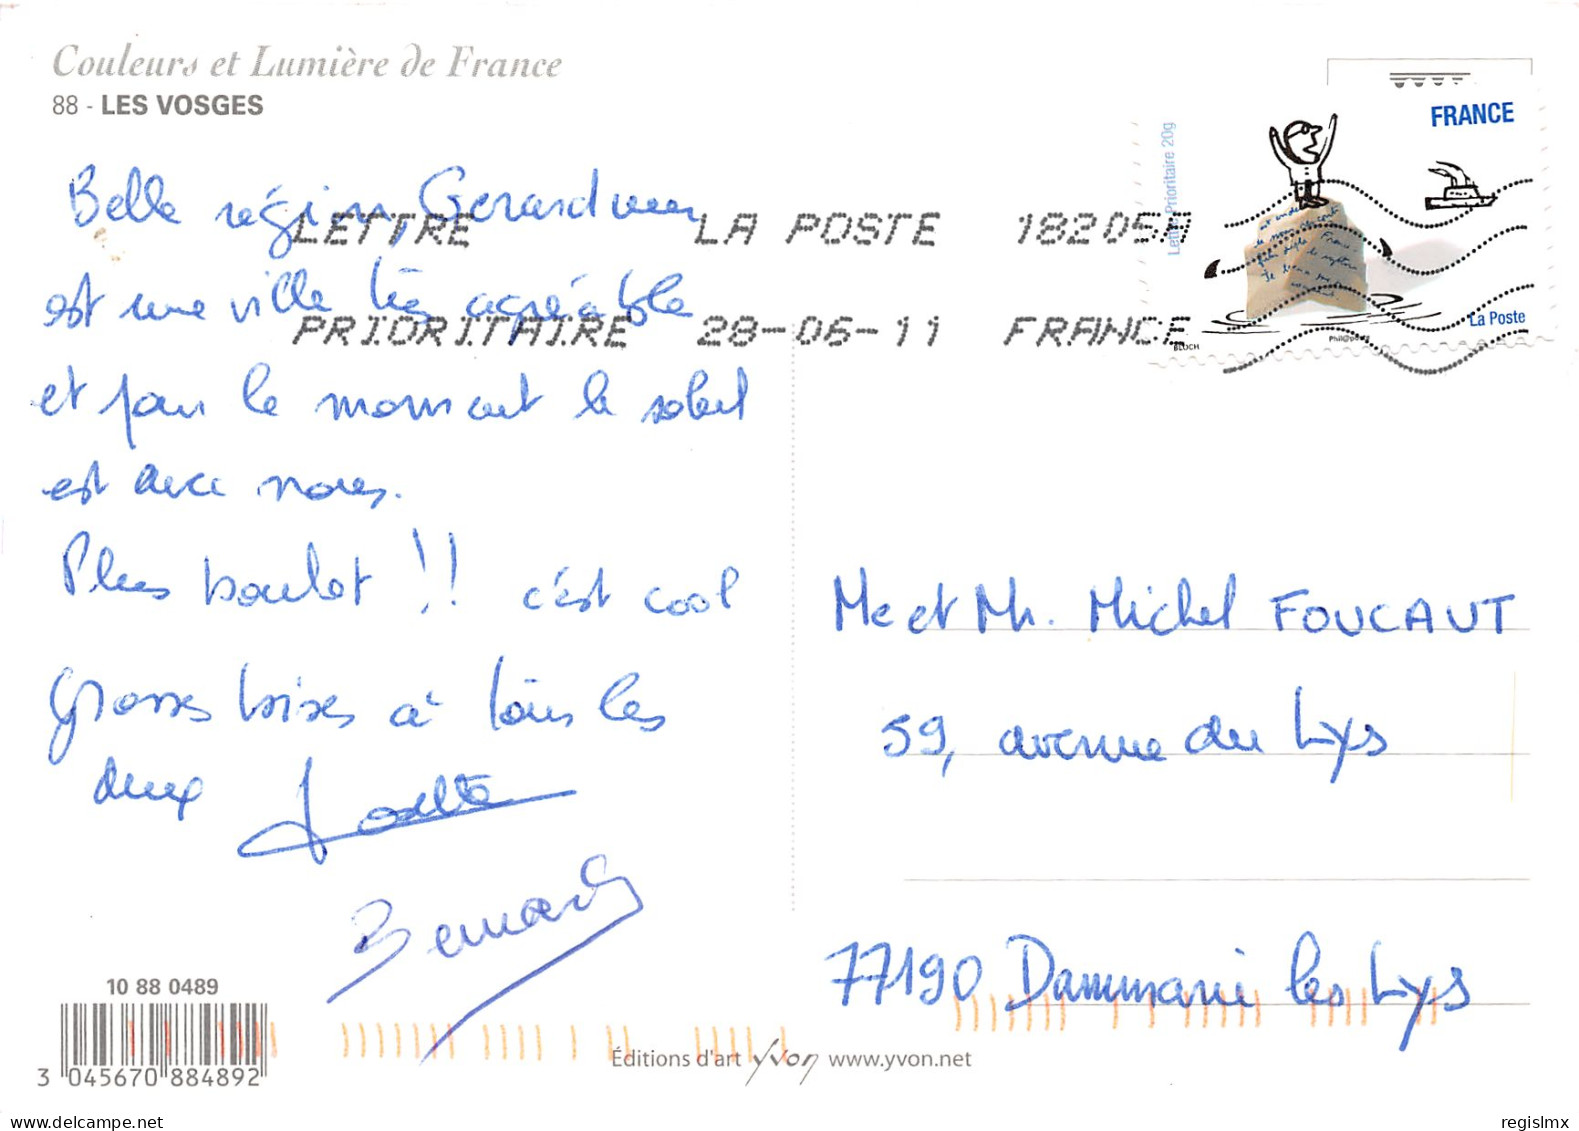 Couleurs et Lumière de France
88 - LES VOSGES
Belle région, Gerardmer
est une ville très agréable
et pour le moment le soleil
est avec nous.
Plus boulot !! c'est cool
Grosses bises à tous les
deux
Bernard
LETTRE LA POSTE 18205A
PRIORITAIRE 28-06-11 FRANCE
Lettre Prioritaire 20g
FRANCE
La Poste
BLOCH
Phil@poste
Me et Mr. Michel FOUCAUT
59, avenue du Lys
77190 Dammarie les Lys
10 88 0489
3 045670 884892
Éditions d'art yvon www.yvon.net
regislmx